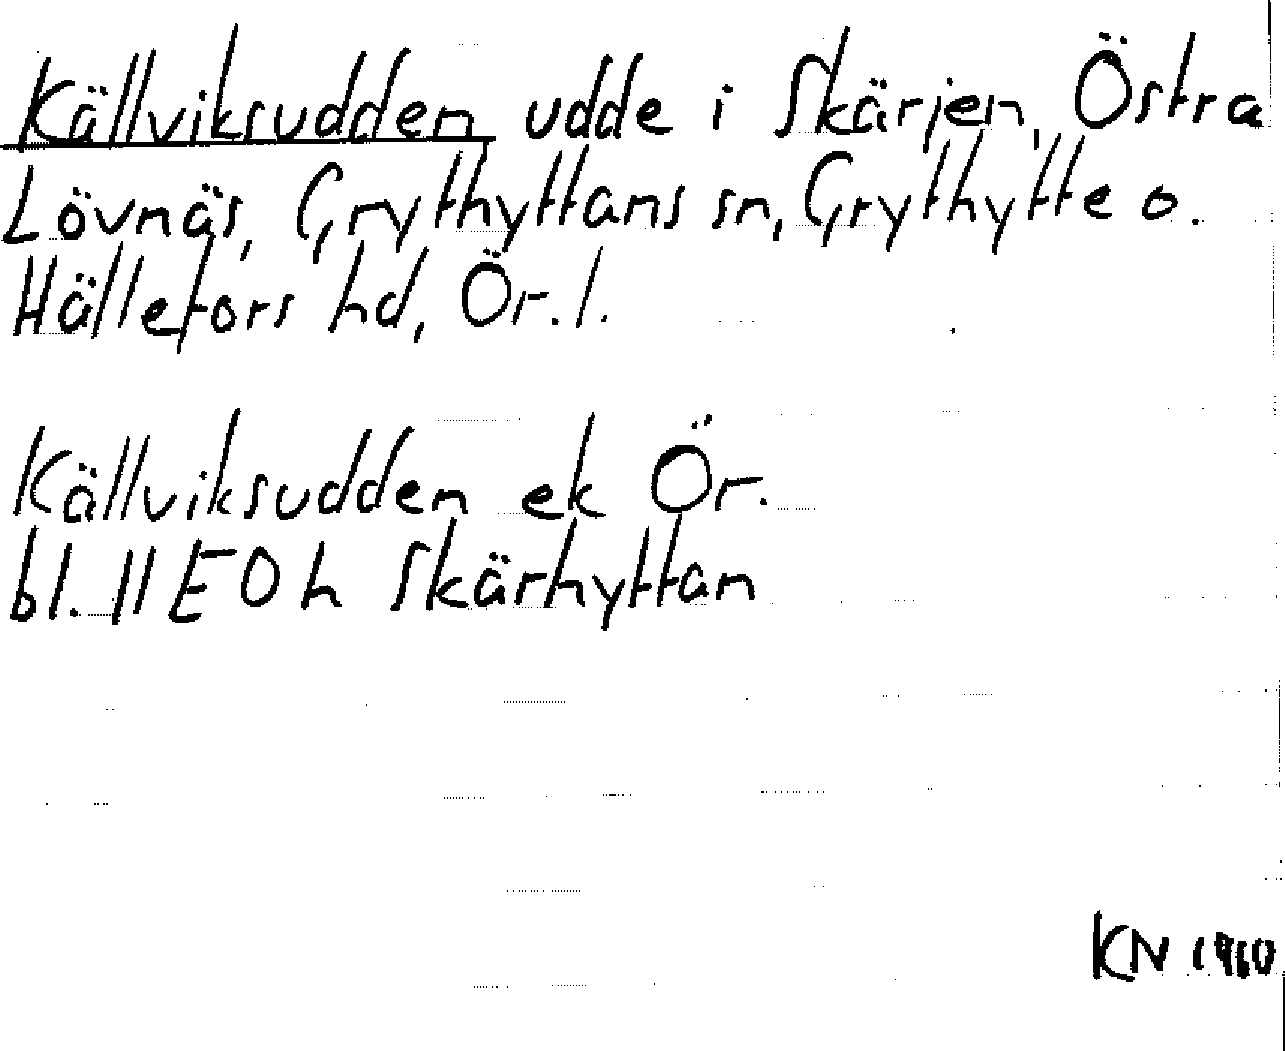 Källviksudden, udde i Skärjen, Östra
Lövnäs, Grythyttans sn, Grythytte o.
Hällefors hd, Ör. l.
Källviksudden ek Ör.
bl. 11 E 0 h Skärhyttan
KN 1960